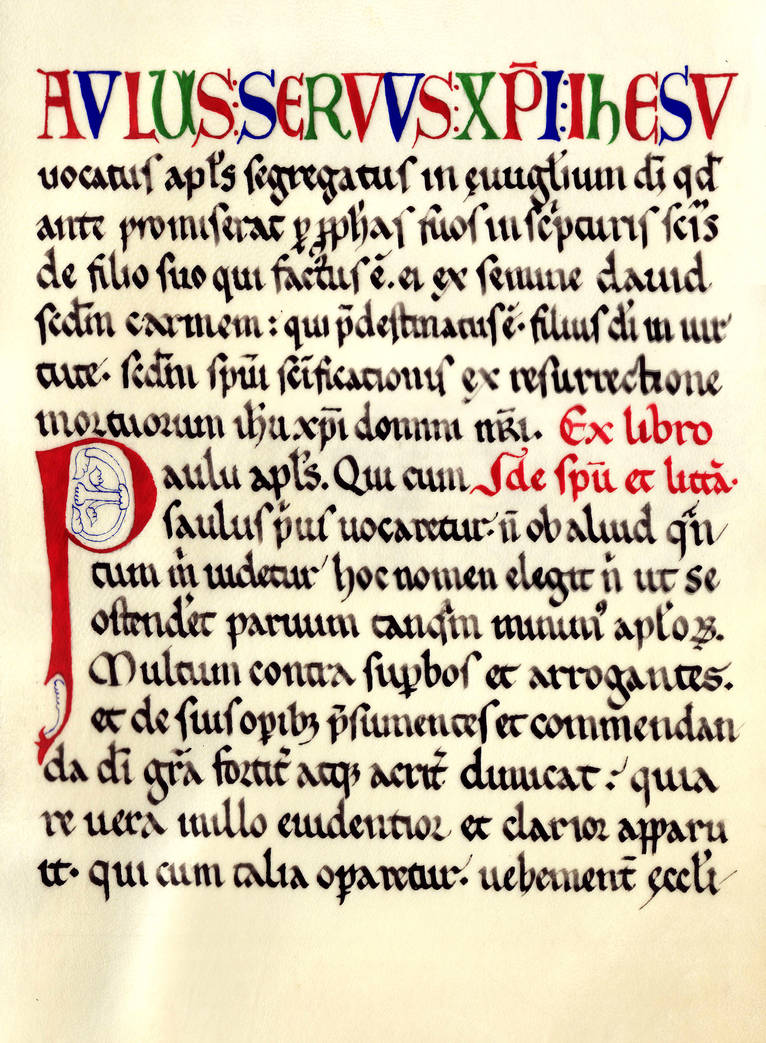 AVLUS:SERVVS:XP̄I:IhESV
uocatus apl̄s segregatus in ęuugl̄ium dī qd̄
ante promiserat ꝑ ꝓph̄as suos in sc̄pturis sc̄is
de filio suo qui factus ē. ei ex semine dauid
scd̄m carnem: qui p̄destinatus ē. filius dī in uir
tute. scd̄m spm̄ sc̄ificationis ex resurrectione
mortuorum ih̄u xp̄i domini nr̄i. Ex libro
Paulu apl̄s. Qui cum S de spū et litt̄a.
saulus p̄us uocaretur. n̄ ob aliud qn̄
tum m̄ uidetur hoc nomen elegit n̄ ut se
ostender̄et paruum tanqm̄ minimꝰ apl̄oꝝ.
Multum contra suꝑbos et arrogantes.
et de suis oꝑibꝫ p̄sumentes et commendan
da dī gr̄a fortit̄ atqꝫ acrit̄ dimicat: quia
re uera in illo euidentior et clarior apparu
it. qui cum talia oꝑaretur. uehement̄ ęccl̄i